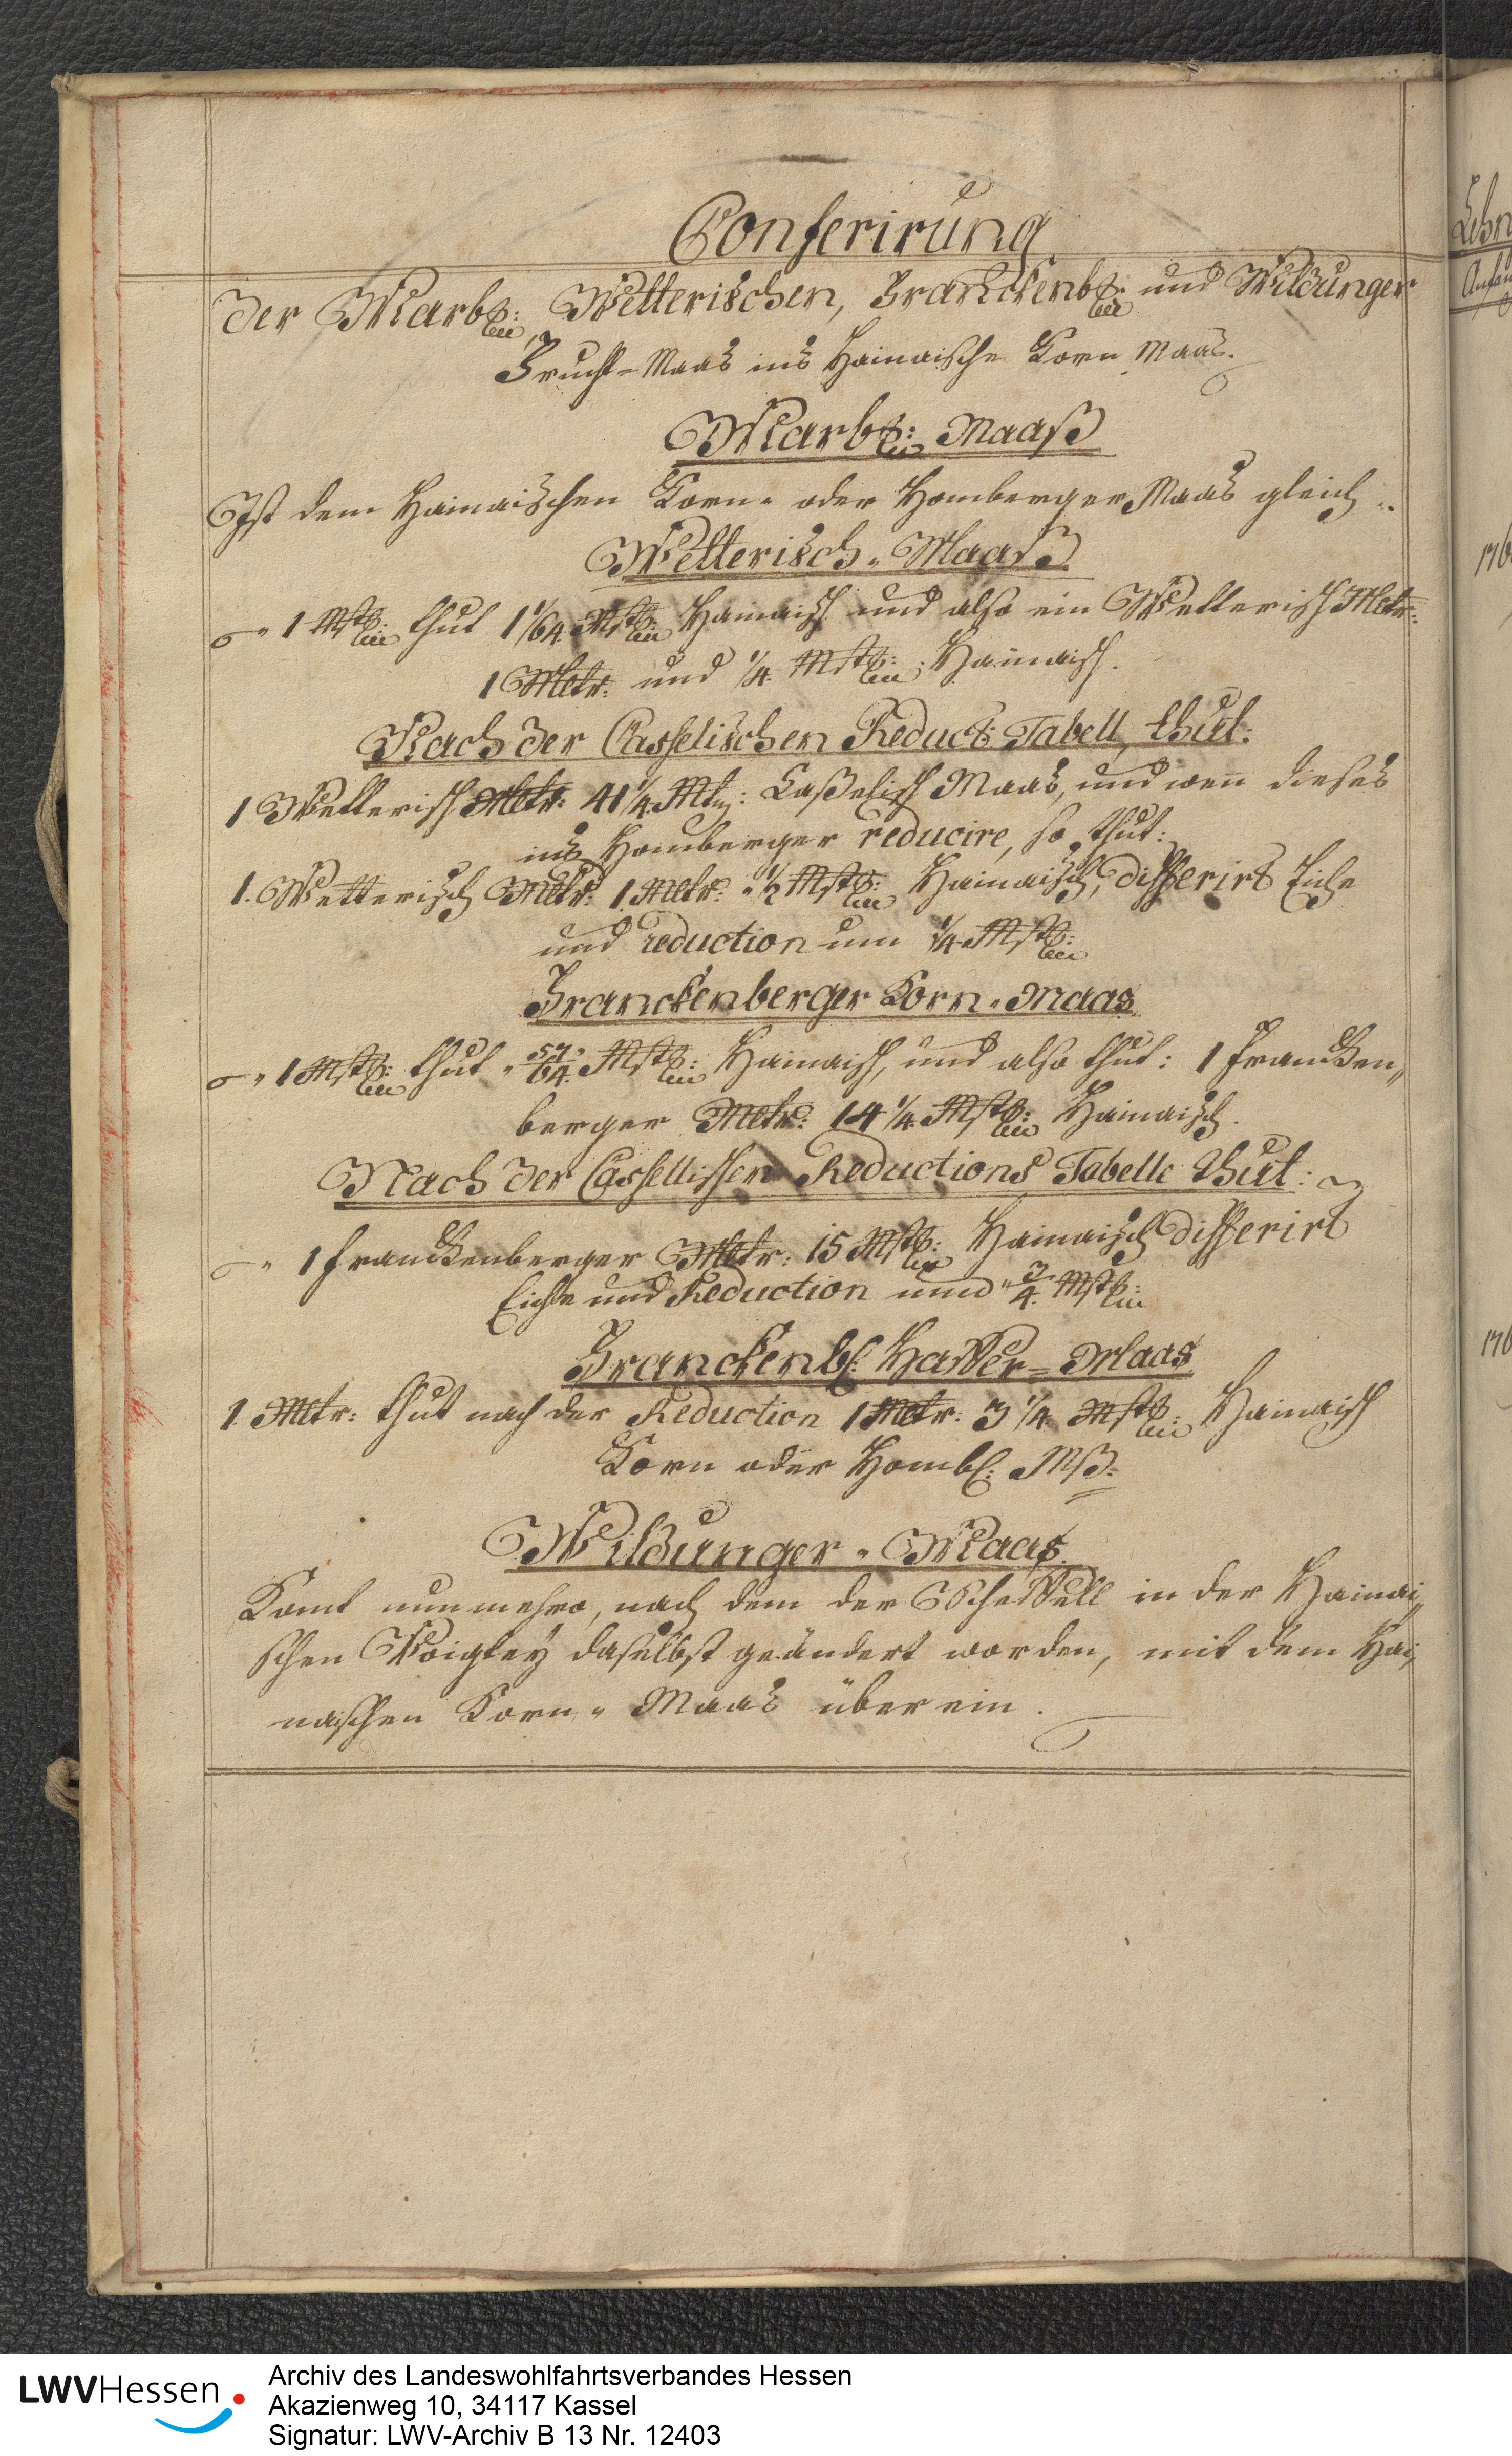 Conferirung
der Marb: Wetterischen, Franckenb: und Wildunger
Frucht-Maas ins Hainaische Korn Maas.
Marb: Maaß
Ist dem Hainaischen Korn- oder Homberger Maas gleich.
Wetterisch-Maaß
1 Mßt: thut 1 1/64 Mßt: Hainaisch und also ein Wetterisch Mttr:
1 Mttr: und 1/4 Mßt: Hainaisch.
Nach der Casselischen Reduct: Tabell, thut:
1 Wetterisch Mttr: 41 1/4 Mtz: Caßelisch Maas, und wen dieses
ins Homberger reducire, so thut:
1. Wetterisch Mttr: 1 Mttr: 1/2 Mßt: Hainaisch, differirt Eiche
und reduction um 1/4 Mßt:
Franckenberger Korn-Maas
1 Mßt: thut 57/64 Mßt: Hainaisch, und also thut: 1 Francken„
berger Mttr: 14 1/4 Mßt: Hainaisch.
Nach der Cassellischen Reductions Tabelle thut:
1 Franckenberger Mttr: 15 Mßt: Hainaisch differirt
Eiche und Reduction umb 3/4 Mßt:
Franckenb: Haffer-Maas
1 Mttr: thut nach der Reduction 1 Mttr: 3 1/4 Mßt: Hainaisch
Korn oder Homb: Mß:
Wildunger-Maas
Komt nunmehro, nach dem der Scheffell in der Hainai„
schen Voigtey daselbst geändert worden, mit dem Hai„
naischen Korn-Maas überein.
Lehn
176
176
LWVHessen
Archiv des Landeswohlfahrtsverbandes Hessen
Akazienweg 10, 34117 Kassel
Signatur: LWV-Archiv B 13 Nr. 12403